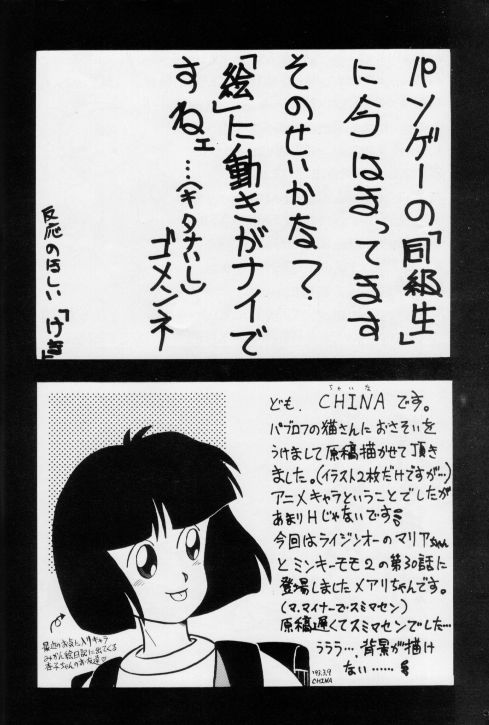 パソゲーの「同級生」
に今はまってます
そのせいかな?
「絵」に動きがナイで
すねェ…(キタナいし)
ゴメンネ
反応のほしい「けき」
ちゃいな
ども、CHINAです。
パブロフの猫さんにおさそいを
うけまして原稿描かせて頂き
ました。(イラスト2枚だけですが…)
アニメキャラということでしたが
あまりHじゃないです
今回はライジンオーのマリアちゃん
とミンキーモモ2の第30話に
登場しましたメアリちゃんです。
(マ、マイナーでスミマセン)
原稿遅くてスミマセンでした…
ううう…、背景が描け
ない……
最近のお気に入りキャラ
みかん絵日記に出てくる
杏子ちゃんのお友達♡
'93.3.9
CHINA